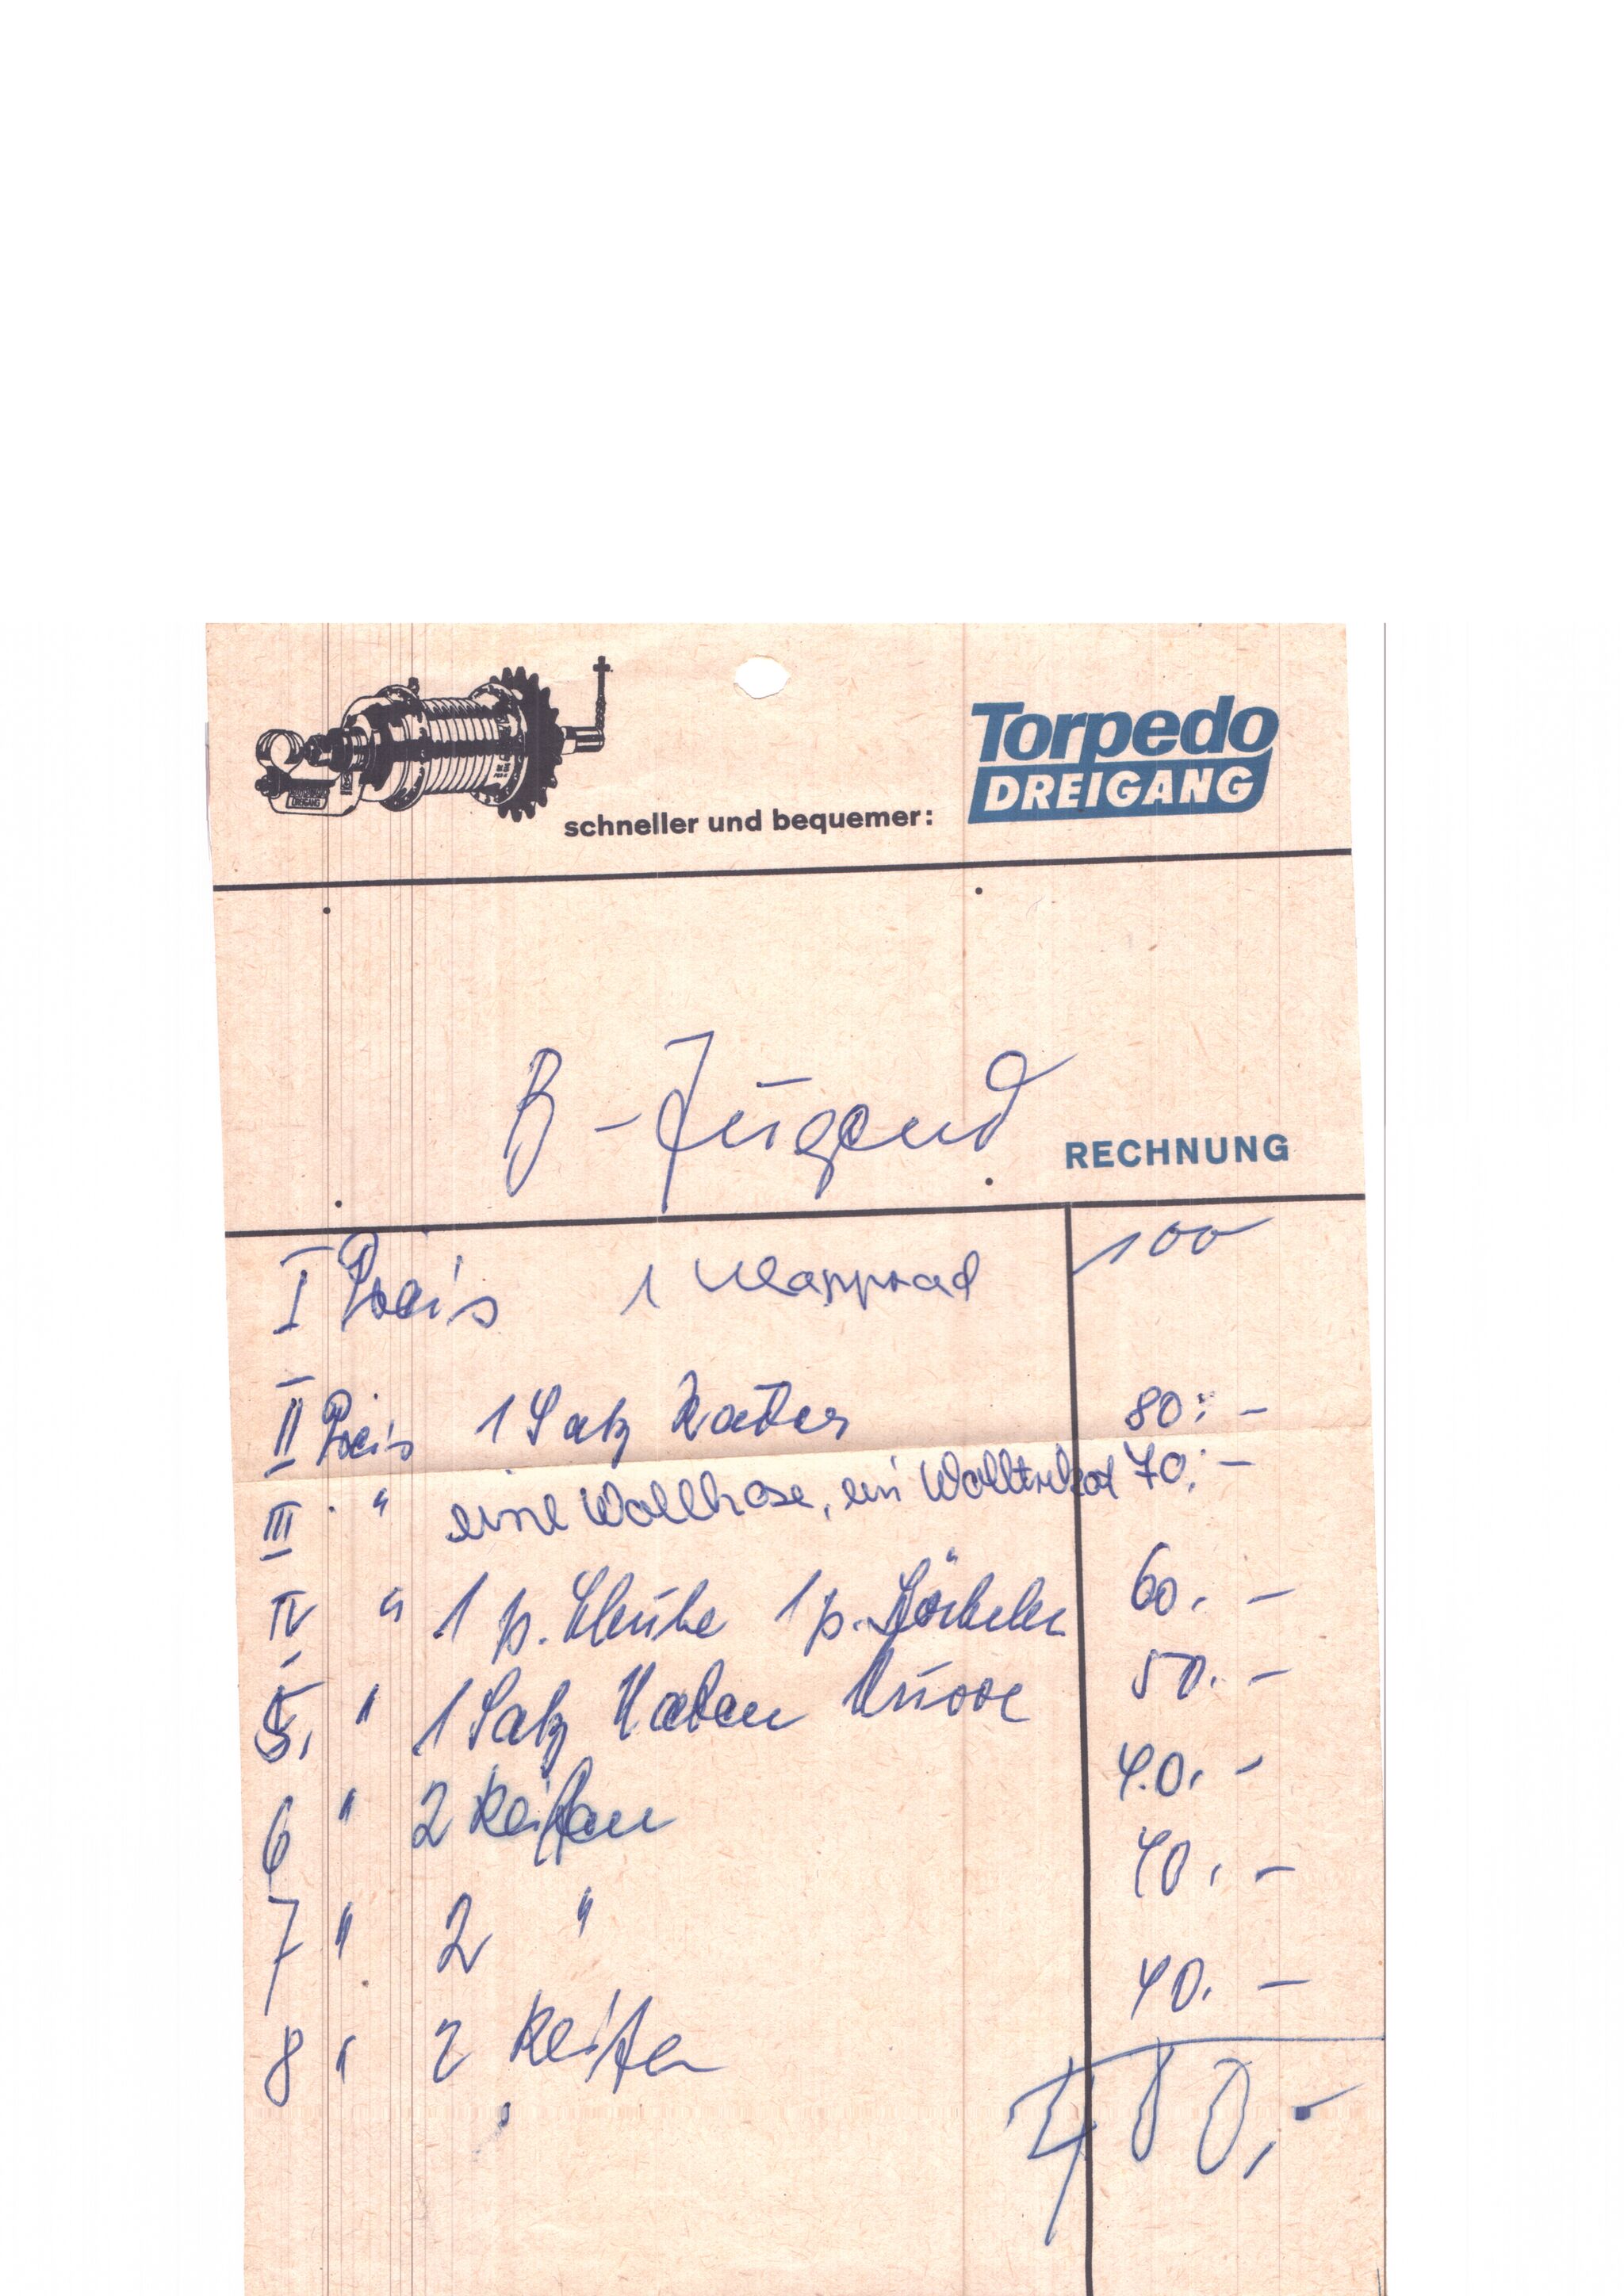 Torpedo
DREIGANG
schneller und bequemer:
B-Jugend
RECHNUNG
I Preis 1 Klapprad 100
II Preis 1 Satz Räder 80.-
III " eine Wollhose, ein Wolltrikot 70.-
IV " 1 p. Schuhe 1 p. 60.-
5. " 1 Satz Naben 50.-
6 " 2 Reifen 40.-
7 " 2 " 40.-
8 " 2 Reifen 40.-
480,-